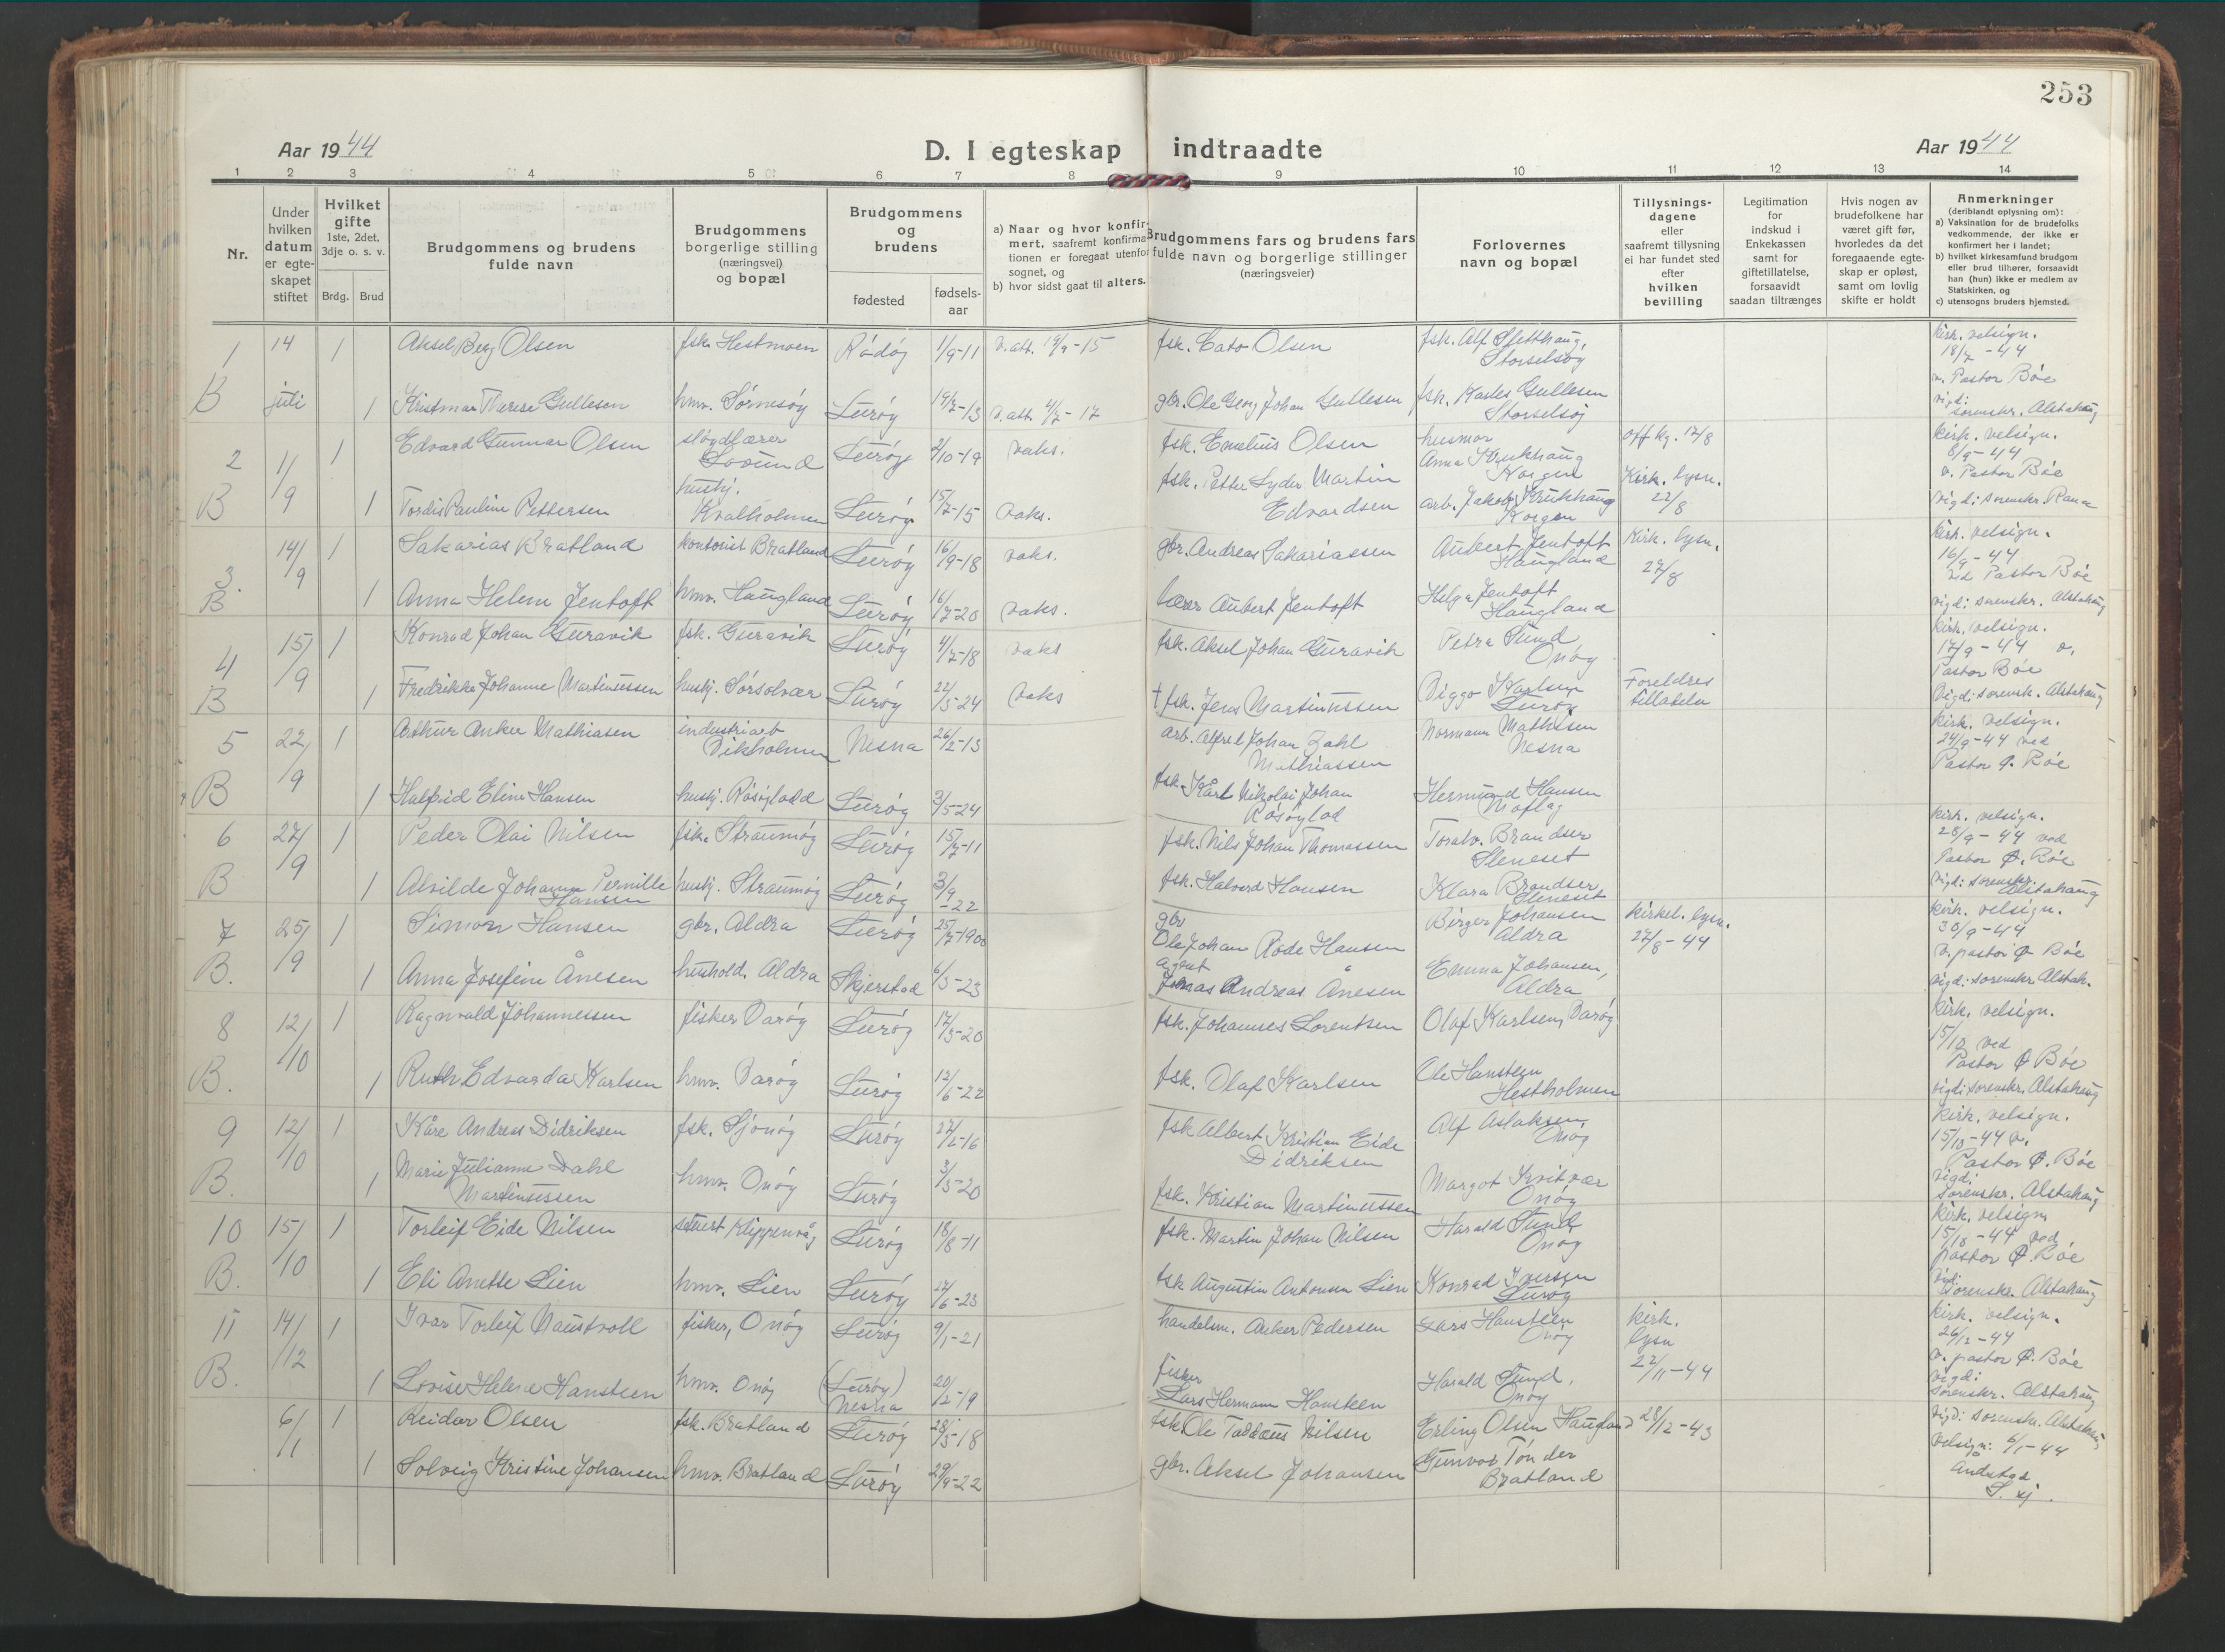 253
Aar 1944
D. I egteskap indtraadte
Aar 1944
1 2 3 4 5 6 7 8 9 10 11 12 13 14
Nr.
Under hvilken datum er egteskapet stiftet
Hvilket gifte
1ste, 2det, 3dje o. s. v.
Brdg. Brud
Brudgommens og brudens fulde navn
Brudgommens borgerlige stilling (næringsvei) og bopæl
Brudgommens og brudens
fødested
fødselsaar
a) Naar og hvor konfirmert, saafremt konfirmationen er foregaat utenfor sognet, og
b) hvor sidst gaat til alters.
Brudgommens fars og brudens fars fulde navn og borgerlige stillinger (næringsveier)
Forlovernes navn og bopæl
Tillysningsdagene eller saafremt tillysning ei har fundet sted efter hvilken bevilling
Legitimation for indskud i Enkekassen samt for giftetillatelse, forsaavidt saadan tiltrænges
Hvis nogen av brudefolkene har været gift før, hvorledes da det foregaaende egteskap er opløst, samt om lovlig skifte er holdt
Anmerkninger
(deriblandt oplysning om):
a) Vaksination for de brudefolks vedkommende, der ikke er konfirmert her i landet;
b) hvilket kirkesamfund brudgom eller brud tilhører, forsaavidt han (hun) ikke er medlem av Statskirken, og
c) utensogns bruders hjemsted.
1 14 1 Aksel Berg Olsen fsk. Hestmoen Rødøy 1/9-11 fsk. Cato Olsen fsk. Alf Sletthaug, Storselsøy kirk. velsign. 18/7-44 v. Pastor Bóe
B juli 1 Kristmar Therese Gullesen hmv. Sørnesøy Lurøy 19/7-13 v. att. 4/7-17 gbr. Ole Georg Johan Gullesen fsk. Karles Gullesen Storselsøy vigd: sorenskr. Alstahaug
2 1/9 1 Edvard Gunnar Olsen sløydlærer Lovund Lurøy 2/10-19 vaks. fsk. Emelius Olsen husmor Anna Krukhaug Korgen off. kg. 17/8 kirk. velsign. 8/9-44 v. Pastor Bóe
B 1 Tordis Pauline Pettersen husbj. Kvalholmen Lurøy 15/7-15 vaks. fsk. Petter Lyder Martin Edvardsen arb. Jakob Krukhaug Korgen Kirk. lysn. 22/8 vigd: sorenskr. Rana
3. 14/9 1 Sakarias Bratland kontorist Bratland Lurøy 16/9-18 vaks. gbr. Andreas Sakariassen Aubert Jentoft Haugland Kirk. lysn. 27/8 kirk. velsign. 16/9-44 ved Pastor Bóe
B 1 Anna Helene Jentoft hmv. Haugland Lurøy 16/7-20 vaks. lærer Aubert Jentoft Helga Jentoft Haugland vigd: sorenskr. Alstahaug
4 15/9 1 Konrad Johan Guravik fsk. Guravik Lurøy 4/7-18 vaks fsk. Aksel Johan Guravik Petra Sund Onøy kirk. velsign. 17/9-44 v. Pastor Bóe
B 1 Fredrikke Johanne Martinussen husbj. Sørsolvær Lurøy 22/5-24 vaks † fsk. Jens Martinussen Viggo Karlsen Lurøy Foreldres tillatelse Vigd: sorensk. Alstahaug
5 22/9 1 Arthur Anker Mathiasen industriarb Vikholmen Nesna 26/2-13 arb. Alfred Johan Zahl Mathiassen Normann Mathisen Nesna kirk. velsign. 24/9-44 ved Pastor Ø. Bóe
B 1 Halfrid Eline Hansen husbj. Røsøylodd Lurøy 3/5-24 fsk. Kårl Nikolai Johan Røsøylod Hermund Hansen Moflag
6 27/9 1 Peder Olai Nilsen fisk. Straumøy Lurøy 15/7-11 fsk. Nils Johan Thomassen Toralv. Brandser Steneset kirk. velsign. 28/9-44 ved Pastor Ø. Bóe
B 1 Alvilde Johanne Pernille Hansen husbj. Straumøy Lurøy 3/9-22 fsk. Halvord Hansen Klara Brandser Steneset vigd: sorenskr. Alstahaug
7 25/9 1 Simon Hansen gbr. Aldra Lurøy 25/7-1900 gbr Ole Johan Rode Hansen Birger Johansen Aldra Kirkel. lysn. 27/8-44 kirk. velsign. 30/9-44 v. pastor Ø Bóe
B. 1 Anna Josefine Ånesen hushold. Aldra Skjerstad 6/3-23 agent Jonas Andreas Ånesen Emma Johansen, Aldra vigd: sorenskr. Alstah.
8 12/10 1 Ragnvald Johannessen fisker Varøy Lurøy 17/3-20 fsk. Johannes Lorentsen Olaf Karlsen, Varøy Kirk. velsign. 15/10 ved Pastor Ø Bóe
B. 1 Ruth Edvarda Karlsen hmv. Varøy Lurøy 12/6-22 fsk. Olaf Karlsen Ole Hansteen Hestholmen vigd: sorenskr. Alstahaug
9 12/10 1 Kåre Andreas Didriksen fsk. Sjonøy Lurøy 27/2-16 fsk Albert Kristian Eide Didriksen Alf Aslaksen Onøy Kirk. velsign. 15/10-44 v. Pastor Ø. Bóe
B. 1 Marie Julianne Dahl Martinussen hmv. Onøy Lurøy 3/3-20 fsk. Kristian Martinussen Margot Kvitvær Onøy vigd: sorenskr. Alstahaug
10 15/10 1 Torleif Eide Nilsen stuert Klippenvåg Lurøy 18/8-11 fsk. Martin Johan Nilsen Harald Sund Onøy Kirk. velsign 15/10-44 ved pastor Ø. Bóe
B. 1 Eli Anette Lien hmv. Lien Lurøy 27/6-23 fsk Augustin Antonsen Lien Konrad Iversen Lurøy vigd: sorenskr. Alstahaug
11 14/12 1 Ivar Torleif Naustvoll fisker, Onøy Lurøy 9/1-21 handelsm. Anker Pedersen Lars Hansteen Onøy kirk. lysn 22/11-44 kirk. velsign. 26/12-44 v. pastor Ø. Bóe
B. 1 Lovise Helene Hansteen hmv. Onøy (Lurøy) Nesna 20/2-19 fisker Lars Hermann Hansteen Harald Sund, Onøy vigd: sorenskr. Alstahaug
6/1 1 Reidar Olsen fsk. Bratland Lurøy 28/5-18 fsk Ole Taddæus Nilsen Erling Olsen Haugland 28/12-43 vigd: sorenskr. Alstahaug Velsign: 6/1-44
1 Solveig Kristine Johansen hmv. Bratland Lurøy 29/9-22 gbr. Aksel Johansen Gunvor Tønder Bratland